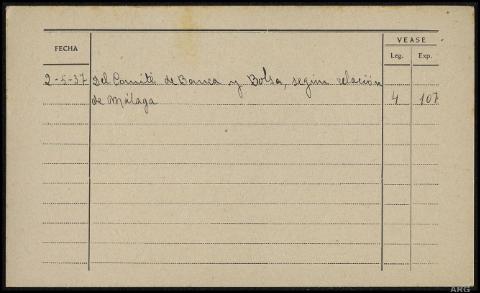 VEASE
FECHA
Leg. Exp.
2-5-37 Del Comité de Banca y Bolsa, según relación
de Málaga 4 107
ARG